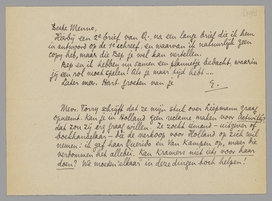 Beste Menno,
Hierbij een 2e brief van A. na een lange brief die ik hem
in antwoord op de 1e schreef, en waarvan ik natuurlijk geen
copy heb, maar die Bep je wel kan vertellen.
Bep en ik hebben nu samen een plannetje bedacht, waarin
jij een rol moet spelen! Als je maar tijd hebt ...
Later meer. Hart. groeten van je
E.
Mon. Torry schrijft dat ze mijn stuk over Kiepmann graag
opneemt. Kan je in Holland geen reclame maken voor
dat zou zij erg graag willen. Ze zoekt iemand - uitgever of
boekhandelaar - die de verkoop voor Holland op zich wil
nemen: ik gaf haar Querido en Van Kampen op, maar die
verdommen het allebei. Kan Kramers niet iets voor haar
doen? We moeten elkaar in deze dingen toch helpen!